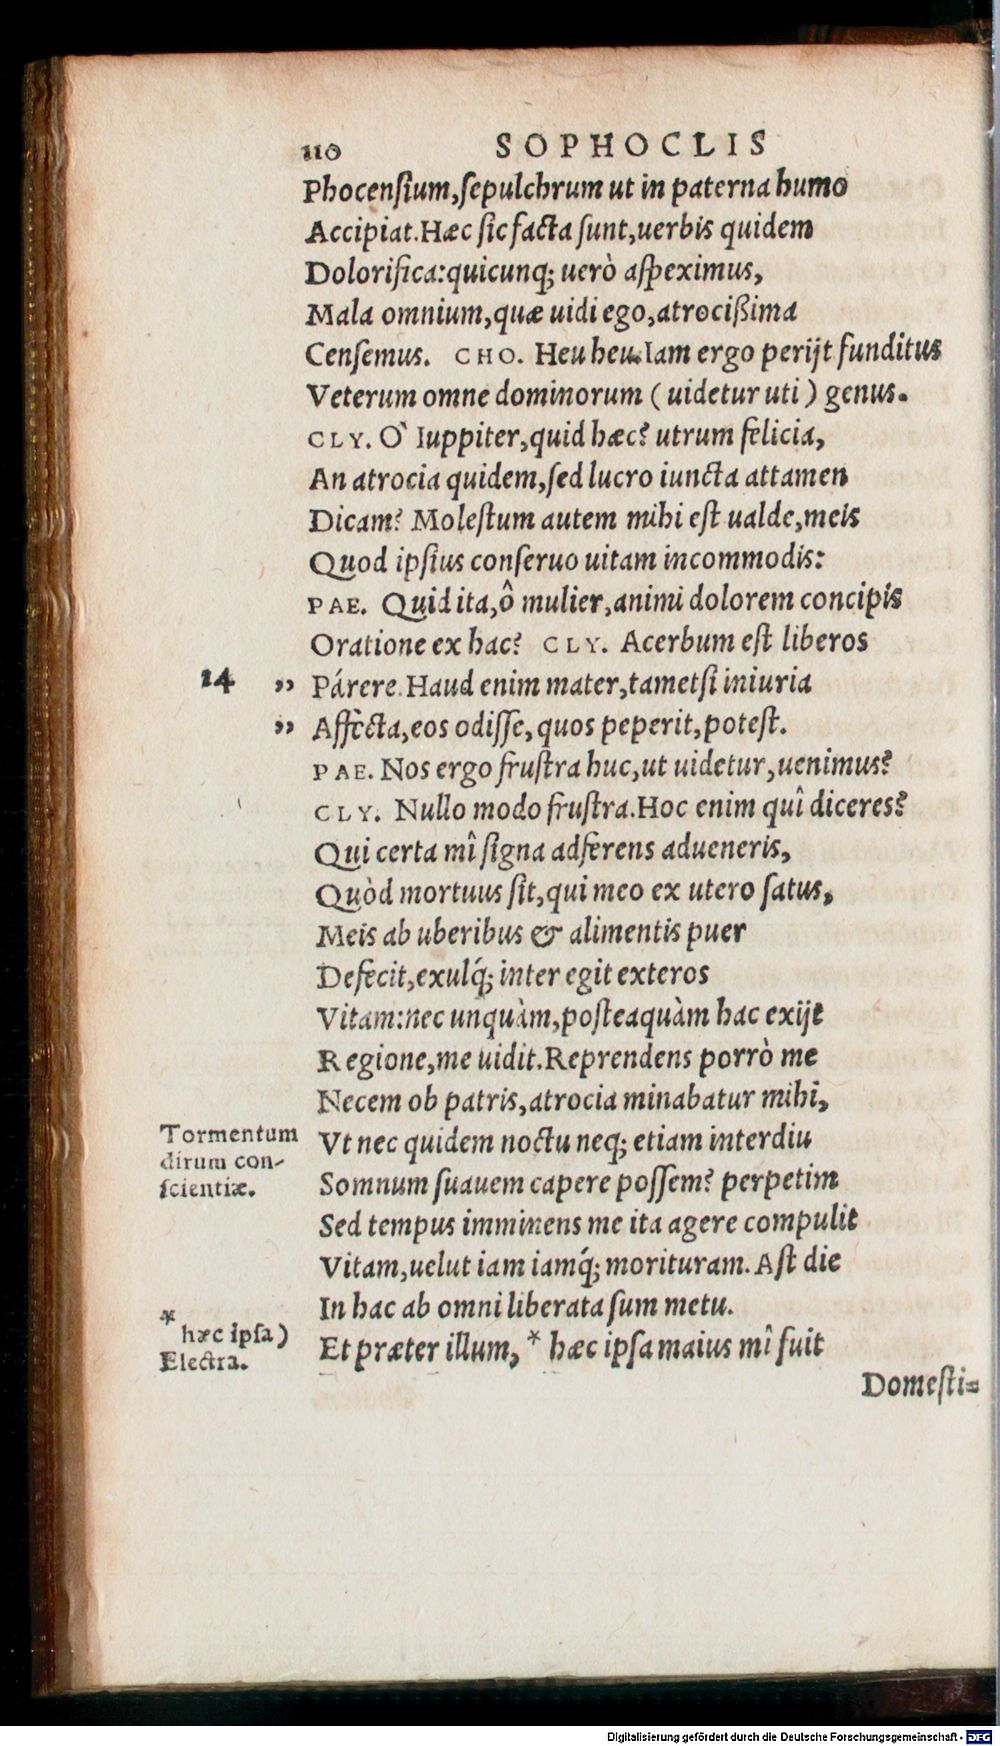 110 SOPHOCLIS
Phocenſium,ſepulchrum ut in paterna humo
Accipiat.Hæc ſic facta ſunt,uerbis quidem
Dolorifica:quicunq; uerò aſpeximus,
Mala omnium,quæ uidi ego,atrocißima
Cenſemus. CHO. Heu heu.Iam ergo perijt funditus
Veterum omne dominorum (uidetur uti) genus.
CLY. O` Iuppiter,quid hæc? utrum felicia,
An atrocia quidem,ſed lucro iuncta attamen
Dicam? Moleſtum autem mihi eſt ualde,meis
Quod ipſius conſeruo uitam incommodis:
PAE. Quid ita,ô mulier,animi dolorem concipis
Oratione ex hac? CLY. Acerbum eſt liberos
14 ” Párere.Haud enim mater,tametſi iniuria
” Affècta,eos odiſſe,quos peperit,poteſt.
PAE. Nos ergo fruſtra huc,ut uidetur,uenimus?
CLY. Nullo modo fruſtra.Hoc enim quî diceres?
Qui certa mî ſigna adferens adueneris,
Quòd mortuus ſit,qui meo ex utero ſatus,
Meis ab uberibus & alimentis puer
Defecit,exulq́; inter egit exteros
Vitam:nec unquàm,poſteaquàm hac exijt
Regione,me uidit.Reprendens porrò me
Necem ob patris,atrocia minabatur mihi,
Tormentum dirum con-
ſcientiæ.
Vt nec quidem noctu neq; etiam interdiu
Somnum ſuauem capere poſſem? perpetim
Sed tempus imminens me ita agere compulit
Vitam,uelut iam iamq́; morituram. Aſt die
In hac ab omni liberata ſum metu.
* hæc ipſa)
Electra.
Et præter illum, * hæc ipſa maius mî fuit
Domeſti=
Digitalisierung gefördert durch die Deutsche Forschungsgemeinschaft - DFG